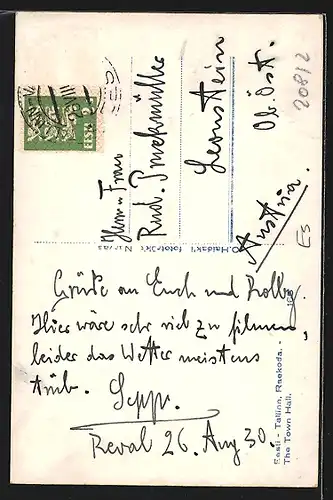 Grüße an Euch und Rolly.
Hier wäre sehr viel zu filmen,
leider das Wetter meistens
trüb. Sepp.
Reval 26. Aug 30.
Herrn u. Frau
Rud.
Leonstein
Ob. Öst.
Austria.
EESTI
2081/2
ES
Eesti - Tallinn, Raekoda. -
The Town Hall.